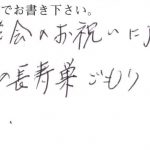 でお書き下さい。
会のお祝いに
の長寿巣ごもり